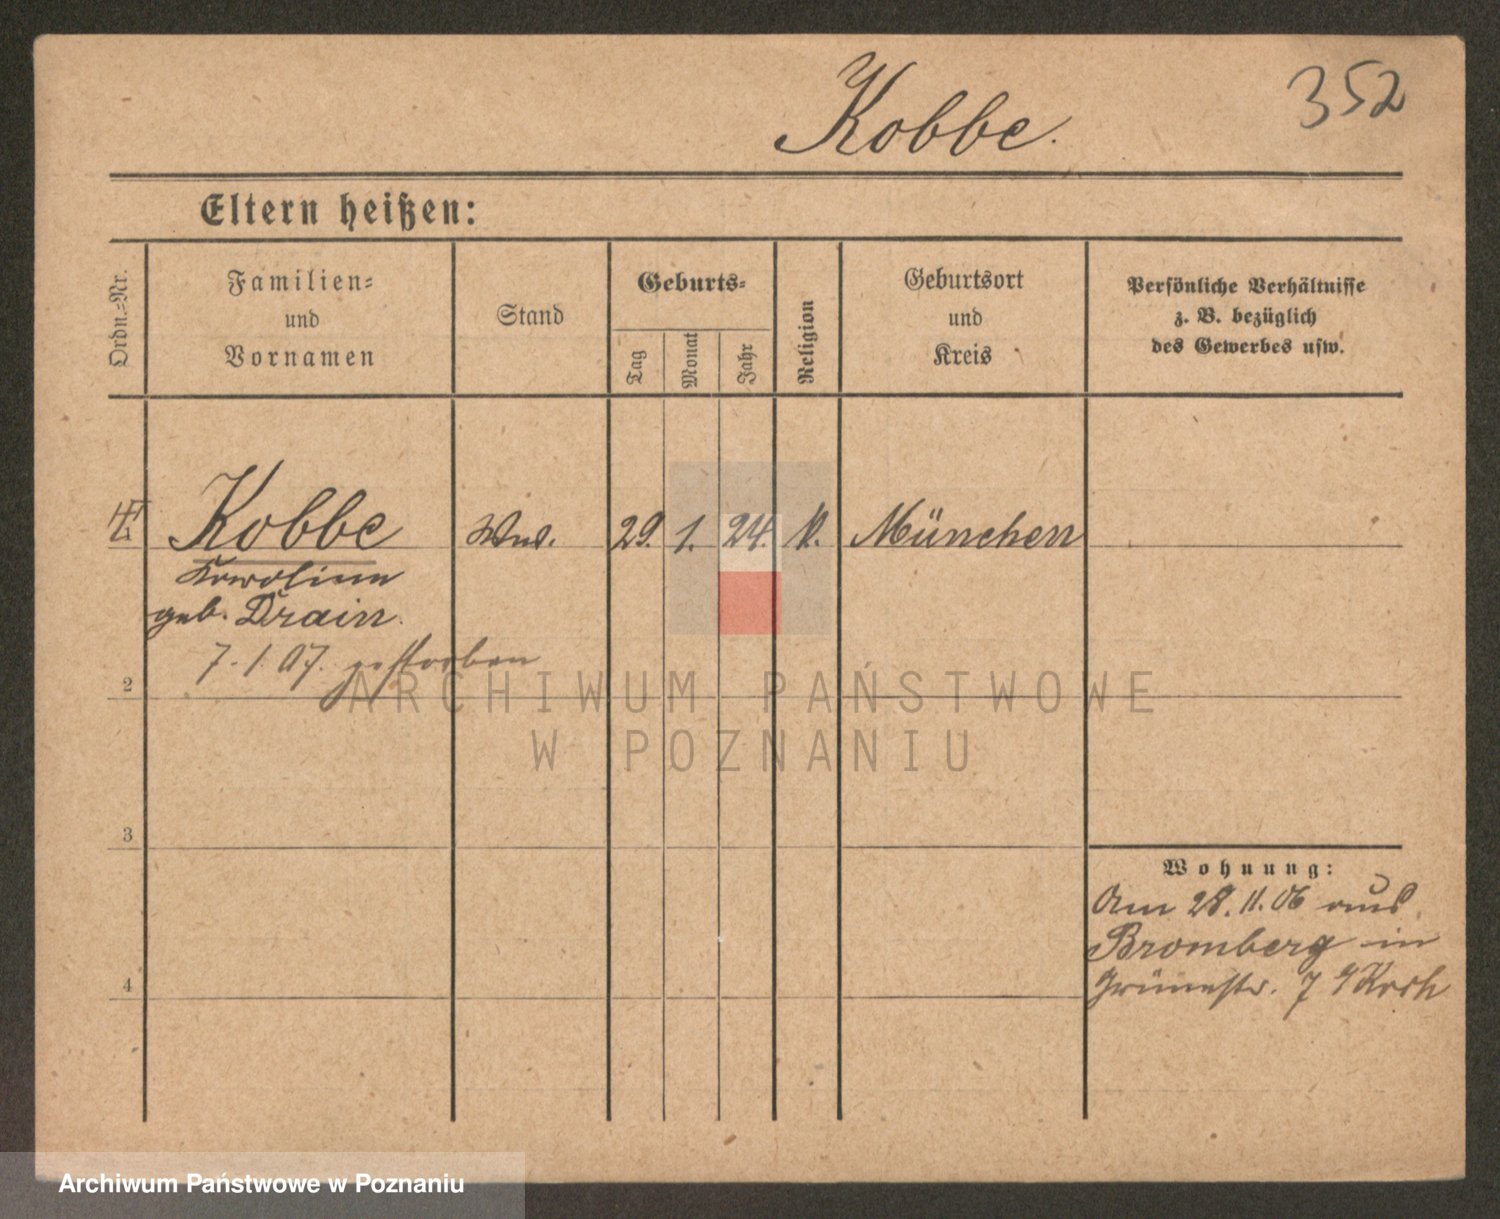 352
Kobbe.
Eltern heißen:
Ordn.=Nr.
Familien=
und
Vornamen
Stand
Geburts=
Tag
Monat
Jahr
Religion
Geburtsort
und
Kreis
Persönliche Verhältnisse
z. B. bezüglich
des Gewerbes usw.
Kobbe
Karoline
geb. Drain.
7.1.07. gestorben
Ww.
29. 1. 24.
München
2
3
4
Wohnung:
Am 28.11.06 aus
Bromberg in
Grünestr. 7
ARCHIWUM PAŃSTWOWE
W POZNANIU
Archiwum Państwowe w Poznaniu